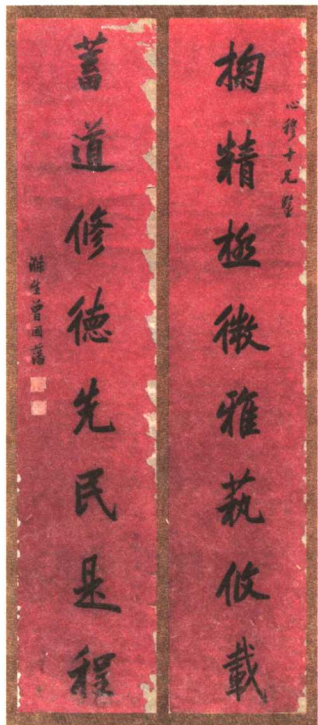 心穆十兄鉴
掬精極微雅蓺攸載
蓄道修德先民是程
滌生曾國藩